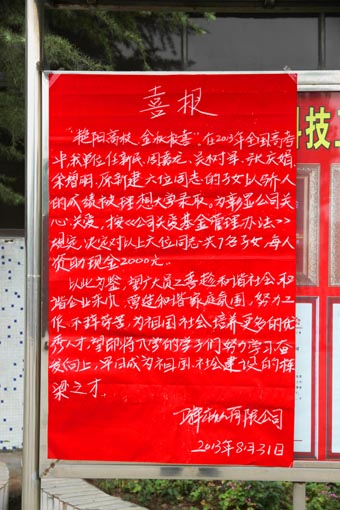 喜报
"艳阳高照,金秋报喜",在2013年全国高考
中我单位任新民、周 、 、张庆娟
、原新建六位同志的子女以骄人
的成绩被理想大学录取,为彰显公司关
心关爱,按《公司关爱基金管理办法》
规定,决定对以上六位同志共7名子女,每人
资助现金2000元。
以此为鉴,望广大员工秉起和谐社会、和
谐企业东风,营建和谐家庭氛围,努力工
作、不辞辛苦,为祖国社会培养更多的优
秀人才,望即将入学的学子们努力学习,奋
发向上,早日成为祖国、社会建设的栋
梁之才。
有限公司
2013年8月31日
科技